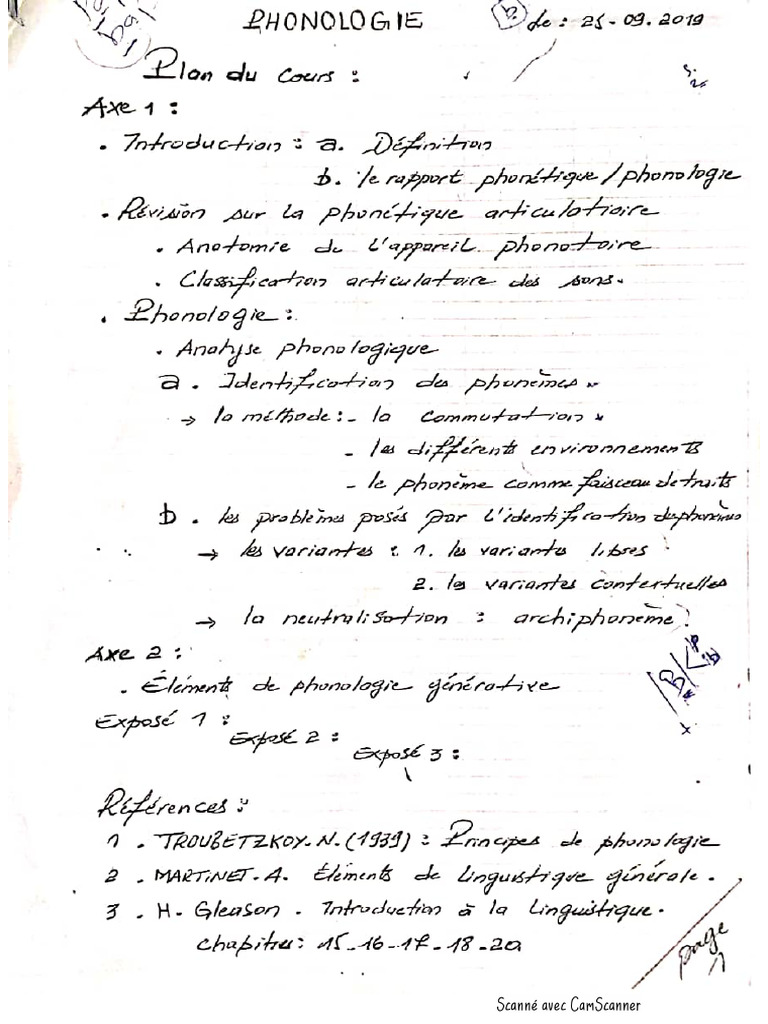 PHONOLOGIE
de : 25-09.2019
Plan du cours :
Axe 1 :
. Introduction : a. Définition
b. le rapport phonétique / phonologie
. Révision sur la phonétique articulatioire
. Anatomie de l'appareil phonatoire
. Classification articulatoire des sons.
. Phonologie :
. Analyse phonologique
a . Identification des phonèmes
→ la méthode : - la commutation
- les différents environnements
- le phonème comme faisceau de traits
b . les problèmes posés par l'identification des phonèmes
→ les variantes : 1. les variantes libres
2. les variantes contextuelles
→ la neutralisation : archiphonème
Axe 2 :
. Éléments de phonologie générative
Exposé 1 :
Exposé 2 :
Exposé 3 :
Références :
1 . TROUBETZKOY. N. (1939) : Principes de phonologie
2 . MARTINET. A. Éléments de linguistique générale .
3 . H. Gleason . Introduction à la linguistique.
chapitres : 15-16-17-18-20
page 1
Scanné avec CamScanner